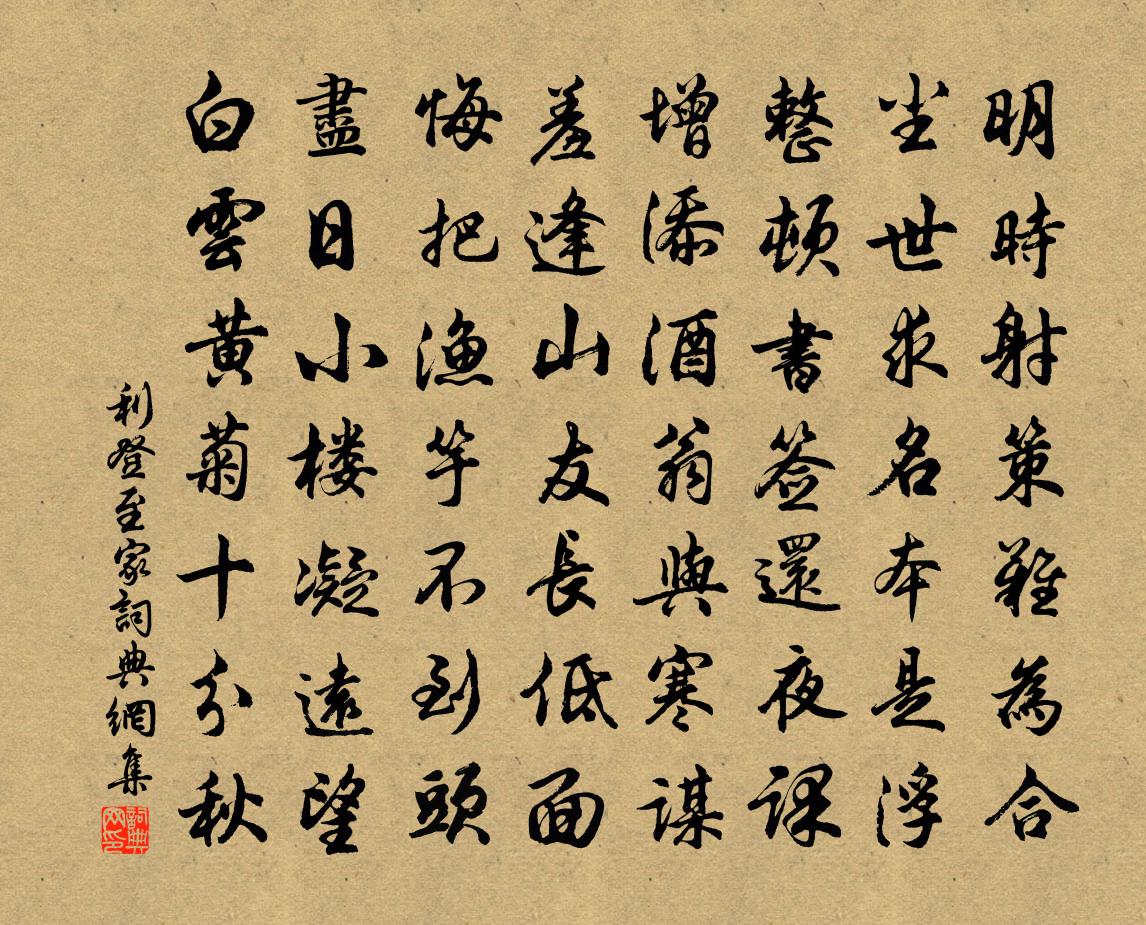 明時射策難為合
坐世求名本是浮
整頓書签還夜課
增添酒翁與寒謀
羞逢山友長低面
悔把漁竿不到頭
盡日小楼凝遠望
白雲黄菊十分秋
利登至家詞典網集
詞典網印